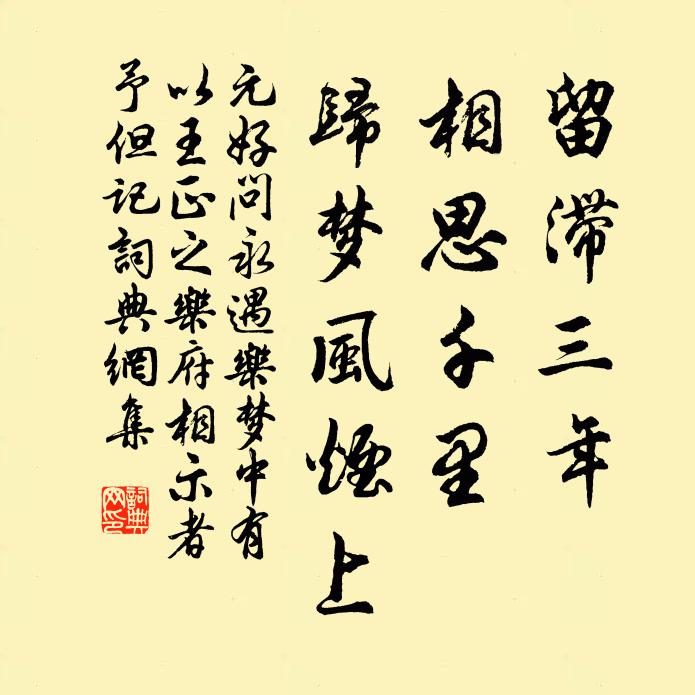 留滯三年
相思千里
歸梦風煙上
元好問永遇樂梦中有
以王正之樂府相示者
予但記詞典網集
詞典
网印